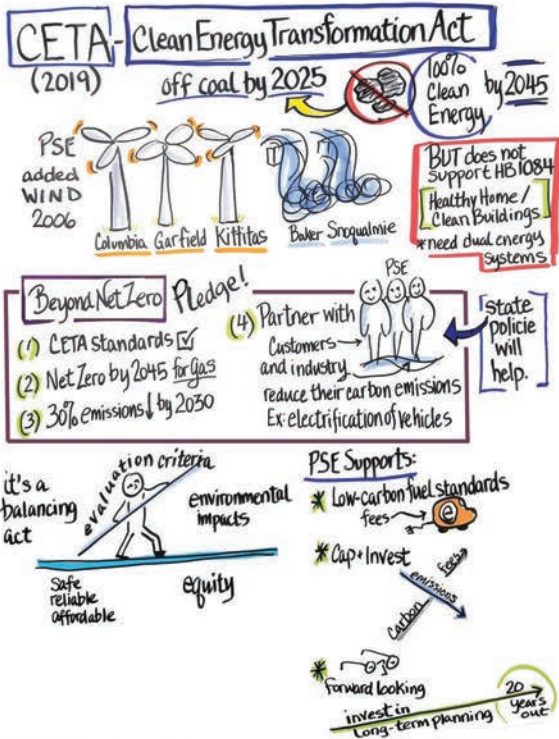 CETA - Clean Energy Transformation Act
(2019)
off coal by 2025
100%
Clean
Energy
by 2045
PSE
added
WIND
2006
Columbia Garfield Kittitas
Baker Snoqualmie
BUT does not
support HB 1084
[Healthy Home/
Clean Buildings]
*need dual energy
systems
Beyond Net Zero Pledge!
(1) CETA standards ☑
(2) Net Zero by 2045 for Gas
(3) 30% emissions ↓ by 2030
PSE
(4) Partner with
Customers →
and industry
reduce their carbon emissions
Ex: electrification of vehicles
[state
policie
will
help.]
it's a
balancing
act
evaluation criteria
environmental
impacts
Safe
reliable
affordable
equity
PSE Supports:
* Low-carbon fuel standards
fees →
e
* Cap + Invest
fees
emissions
Carbon
*
forward looking
invest in
long-term planning
20
years
out